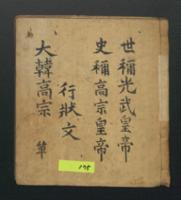 世稱光武皇帝
史稱高宗皇帝
行狀文
大韓高宗 單
175